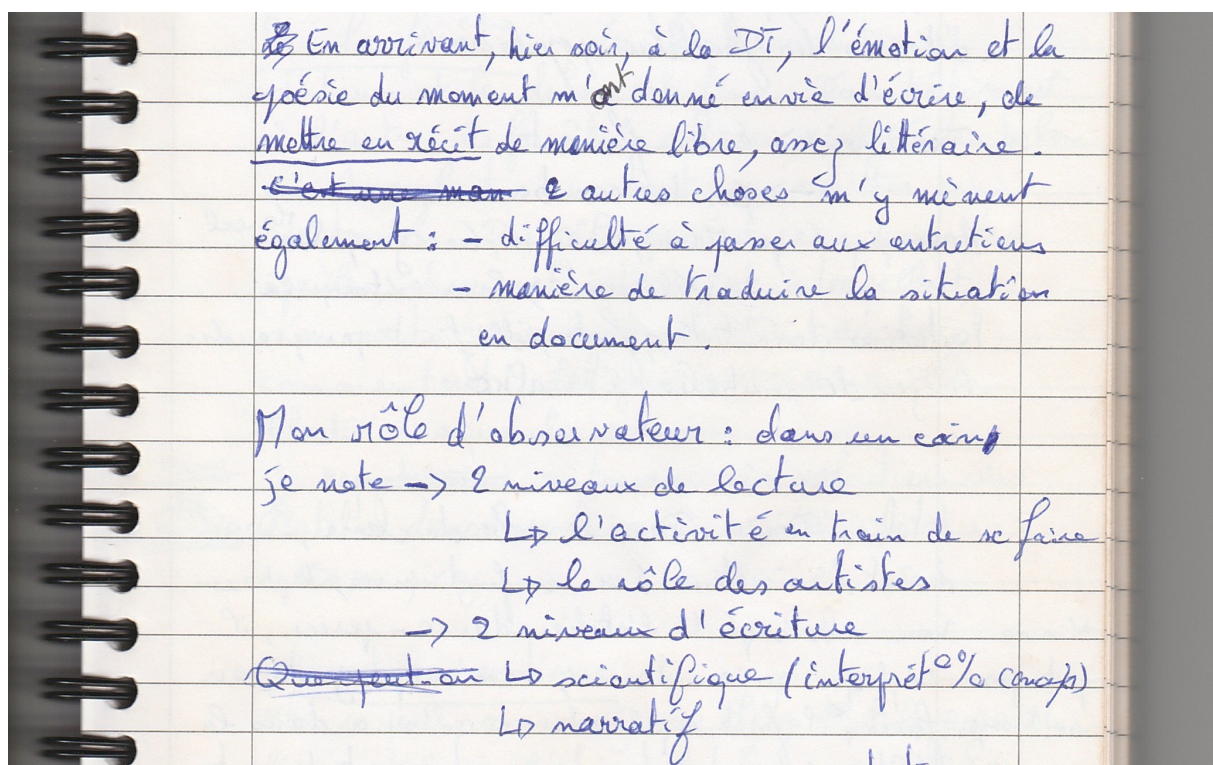 En arrivant, hier soir, à la DT, l'émotion et la
poésie du moment m'ont donné envie d'écrire, de
mettre en récit de manière libre, assez littéraire.
C'est une man 2 autres choses m'y mènent
également : - difficulté à passer aux entretiens
- manière de traduire la situation
en document.
Mon rôle d'observateur : dans un coin,
je note -> 2 niveaux de lecture
↳ l'activité en train de se faire
↳ le rôle des artistes
-> 2 niveaux d'écriture
Que peut-on ↳ scientifique (interprét° % concep)
↳ narratif